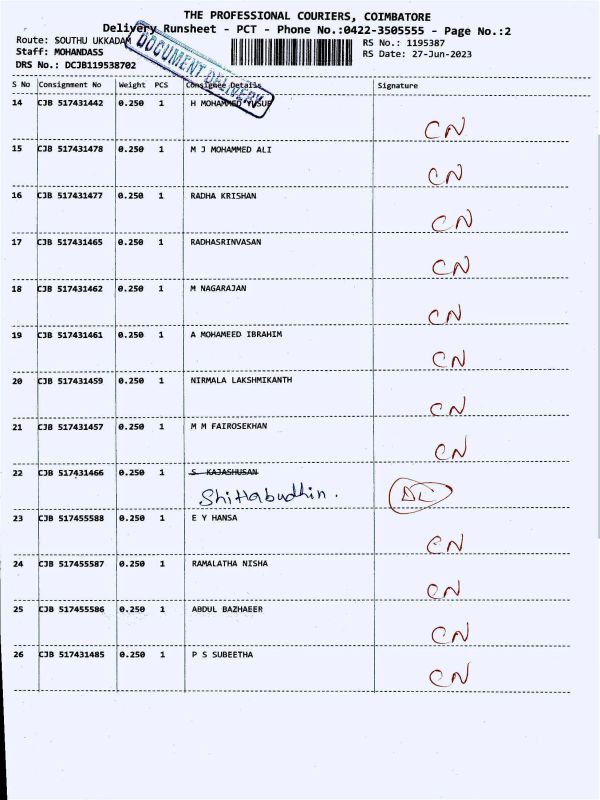 THE PROFESSIONAL COURIERS, COIMBATORE
Delivery Runsheet - PCT - Phone No.:0422-3505555 - Page No.:2
Route: SOUTHU UKKADAM
RS No.: 1195387
Staff: MOHANDASS
RS Date: 27-Jun-2023
DRS No.: DCJB119538702
DOCUMENT DELIVERY
S No Consignment No Weight PCS Consignee Details Signature
14 CJB 517431442 0.250 1 H MOHAMMED YUSUF
CN
15 CJB 517431478 0.250 1 M J MOHAMMED ALI
CN
16 CJB 517431477 0.250 1 RADHA KRISHAN
CN
17 CJB 517431465 0.250 1 RADHASRINVASAN
CN
18 CJB 517431462 0.250 1 M NAGARAJAN
CN
19 CJB 517431461 0.250 1 A MOHAMEED IBRAHIM
CN
20 CJB 517431459 0.250 1 NIRMALA LAKSHMIKANTH
CN
21 CJB 517431457 0.250 1 M M FAIROSEKHAN
CN
22 CJB 517431466 0.250 1 S KAJASHUSAN
Shittabudhin. DL
23 CJB 517455588 0.250 1 E Y HANSA
CN
24 CJB 517455587 0.250 1 RAMALATHA NISHA
CN
25 CJB 517455586 0.250 1 ABDUL BAZHAEER
CN
26 CJB 517431485 0.250 1 P S SUBEETHA
CN